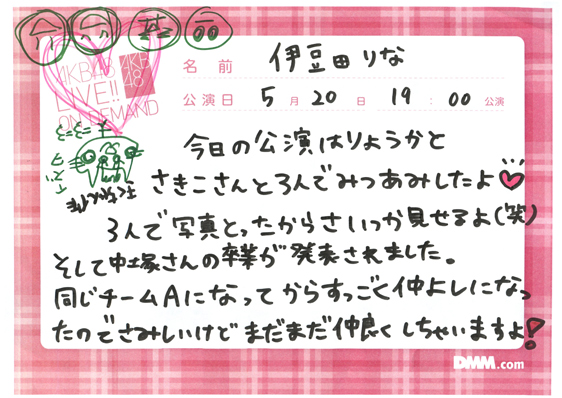 AKB48
LIVE!!
ON DEMAND
AKB
48
名前 伊豆田りな
公演日 5月20日 19:00公演
今日の公演はりょうかと
さきこさんと3人でみつあみしたよ♡
3人で写真とったからさいっか見せるよ(笑)
そして中塚さんの卒業が発表されました。
同じチームAになってからすっごく仲よしになっ
たのでさみしいけどまだまだ仲良くしちゃいますよ!
DMM.com